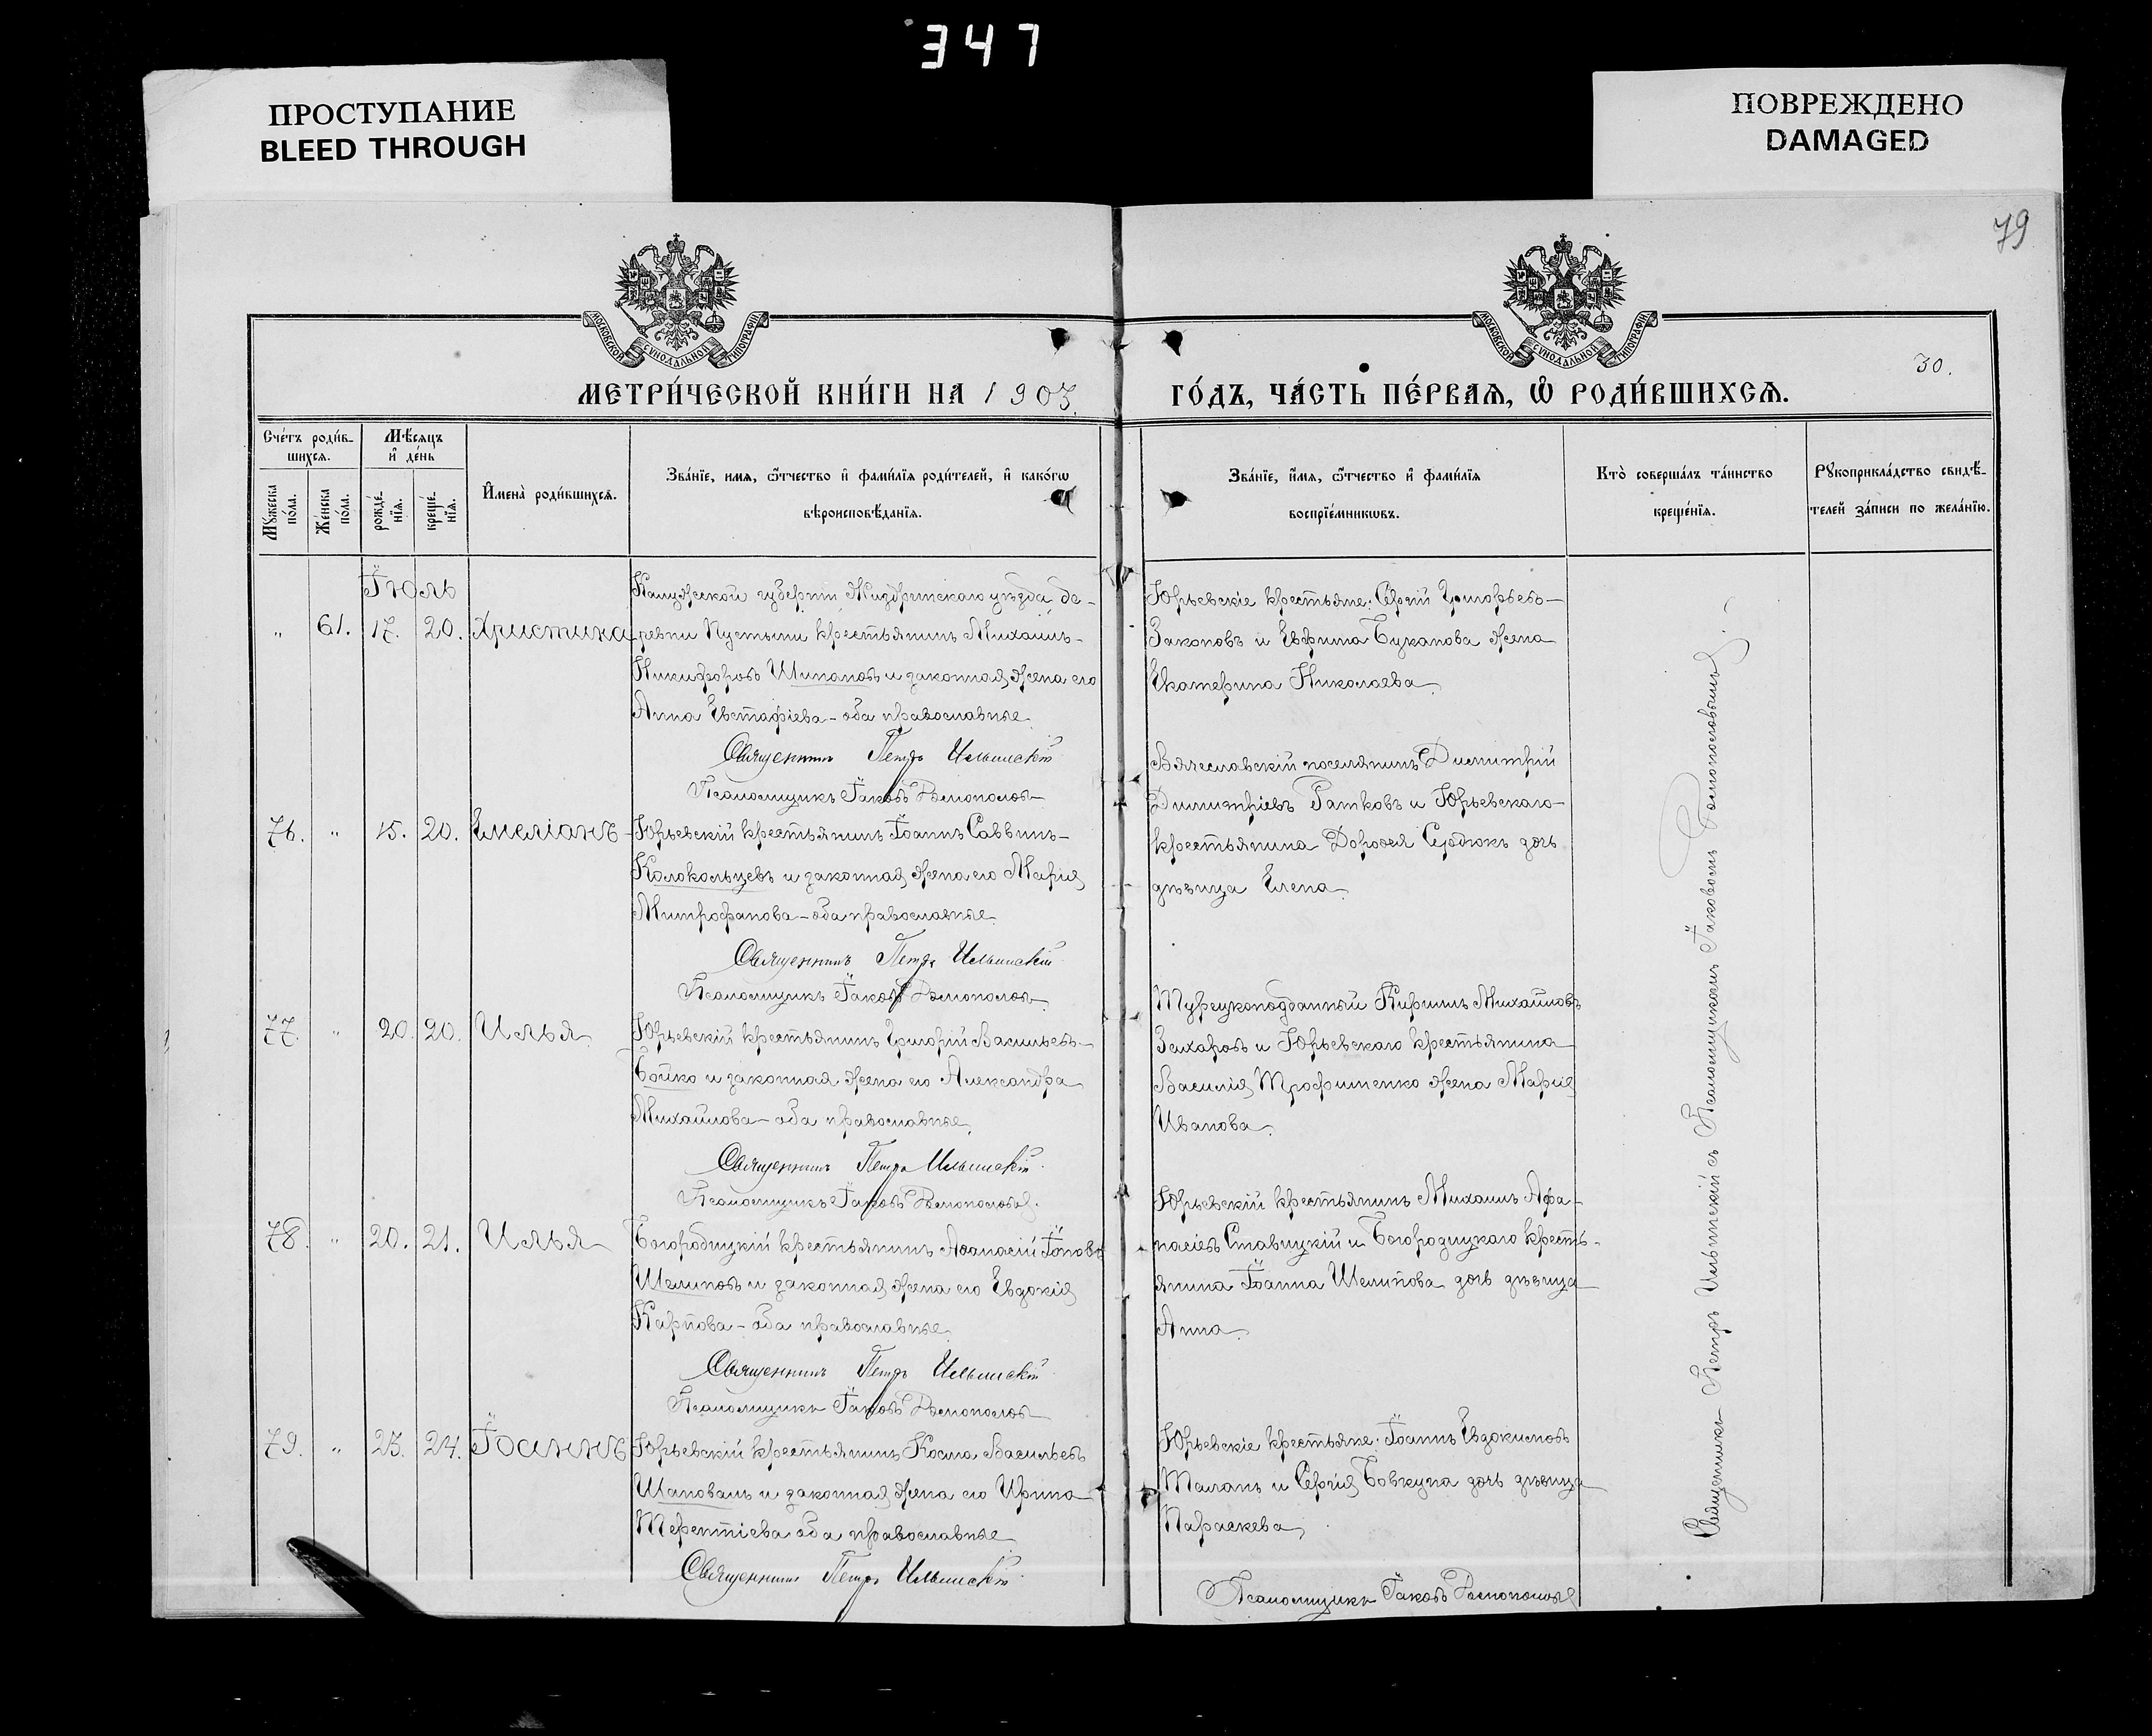 347
ПРОСТУПАНИЕ
BLEED THROUGH
ПОВРЕЖДЕНО
DAMAGED
79
МОСКОВСКОЙ СѴНОДАЛЬНОЙ ТИПОГРАФІИ
МОСКОВСКОЙ СѴНОДАЛЬНОЙ ТИПОГРАФІИ
30.
МЕТРИ́ЧЕСКОЙ КНИ́ГИ НА 1903.
ГО́ДЪ, ЧА́СТЬ ПЕ́РВАѦ, Ѽ РОДИ́ВШИХСѦ.
Сче́тъ роди́в-
шихсѧ.
Мꙋ́жеска
по́ла.
Же́нска
по́ла.
Мѣ́сѧцъ
и҆ де́нь
рожде́-
нїѧ.
креще́-
нїѧ.
И҆мена̀ роди́вшихсѧ.
Зва́нїе, имѧ, ѻ҆́тчество и҆ фами́лїѧ роди́телей, и҆ како́гѡ
вѣроисповѣ́данїѧ.
Зва́нїе, и҆́мѧ, ѻ҆́тчество и҆ фами́лїѧ
воспрїе́мникѡвъ.
Кто̀ соверша́лъ та́инство
креще́нїѧ.
Рꙋкоприкла́дство свидѣ́-
телей за́писи по жела́нїю.
Іюль
" 61. 17. 20. Христина
Калужской губерніи Жиздринскаго уѣзда, де-
ревни Пустыни крестьянинъ Михаилъ
Никифоровъ Шипановъ и законная жена его
Анна Евстафіева – оба православные.
Священникъ Петръ Ильинскій
Псаломщикъ Іаковъ
Юрьевскіе крестьяне: Сергій Григорьевъ
Законовъ и Евфима Буканова жена
Екатерина Николаева.
76. " 15. 20. Емеліанъ
Юрьевскій крестьянинъ Іоаннъ Саввинъ
Колокольцевъ и законная жена его Марія
Митрофанова – оба православные
Священникъ Петръ Ильинскій
Псаломщикъ Іаковъ
Вячеславскій поселянинъ Димитрій
Димитріевъ Ратковъ и Юрьевскаго
крестьянина Дорофея Сердюкъ дочь
дѣвица Елена.
77. " 20. 20. Илья
Юрьевскій крестьянинъ Григорій Васильевъ
Бойко и законная жена его Александра
Михайлова – оба православные.
Священникъ Петръ Ильинскій
Псаломщикъ Іаковъ
Турецкоподданный Кириллъ Михайловъ
Захаровъ и Юрьевскаго крестьянина
Василія Трофименко жена Марія
Иванова.
78. " 20. 21. Илья
Богородицкій крестьянинъ Аѳанасій Іоновъ
Шелиповъ и законная жена его Евдокія
Карпова – оба православные.
Священникъ Петръ Ильинскій
Псаломщикъ Іаковъ
Юрьевскій крестьянинъ Михаилъ Афа-
насіевъ Ставицкій и Богородицкаго кресть-
янина Іоанна Шелипова дочь дѣвица
Анна.
79. " 23. 24. Іоаннъ
Юрьевскій крестьянинъ Косма Васильевъ
Шаповалъ и законная жена его Ирина
Терентіева оба православные
Священникъ Петръ Ильинскій
Юрьевскіе крестьяне: Іоаннъ Евдокимовъ
Таланъ и Сергія Бовкуна дочь дѣвица
Параскева
Псаломщикъ Іаковъ
Священникъ Петръ Ильинскій съ Псаломщикомъ Іаковомъ